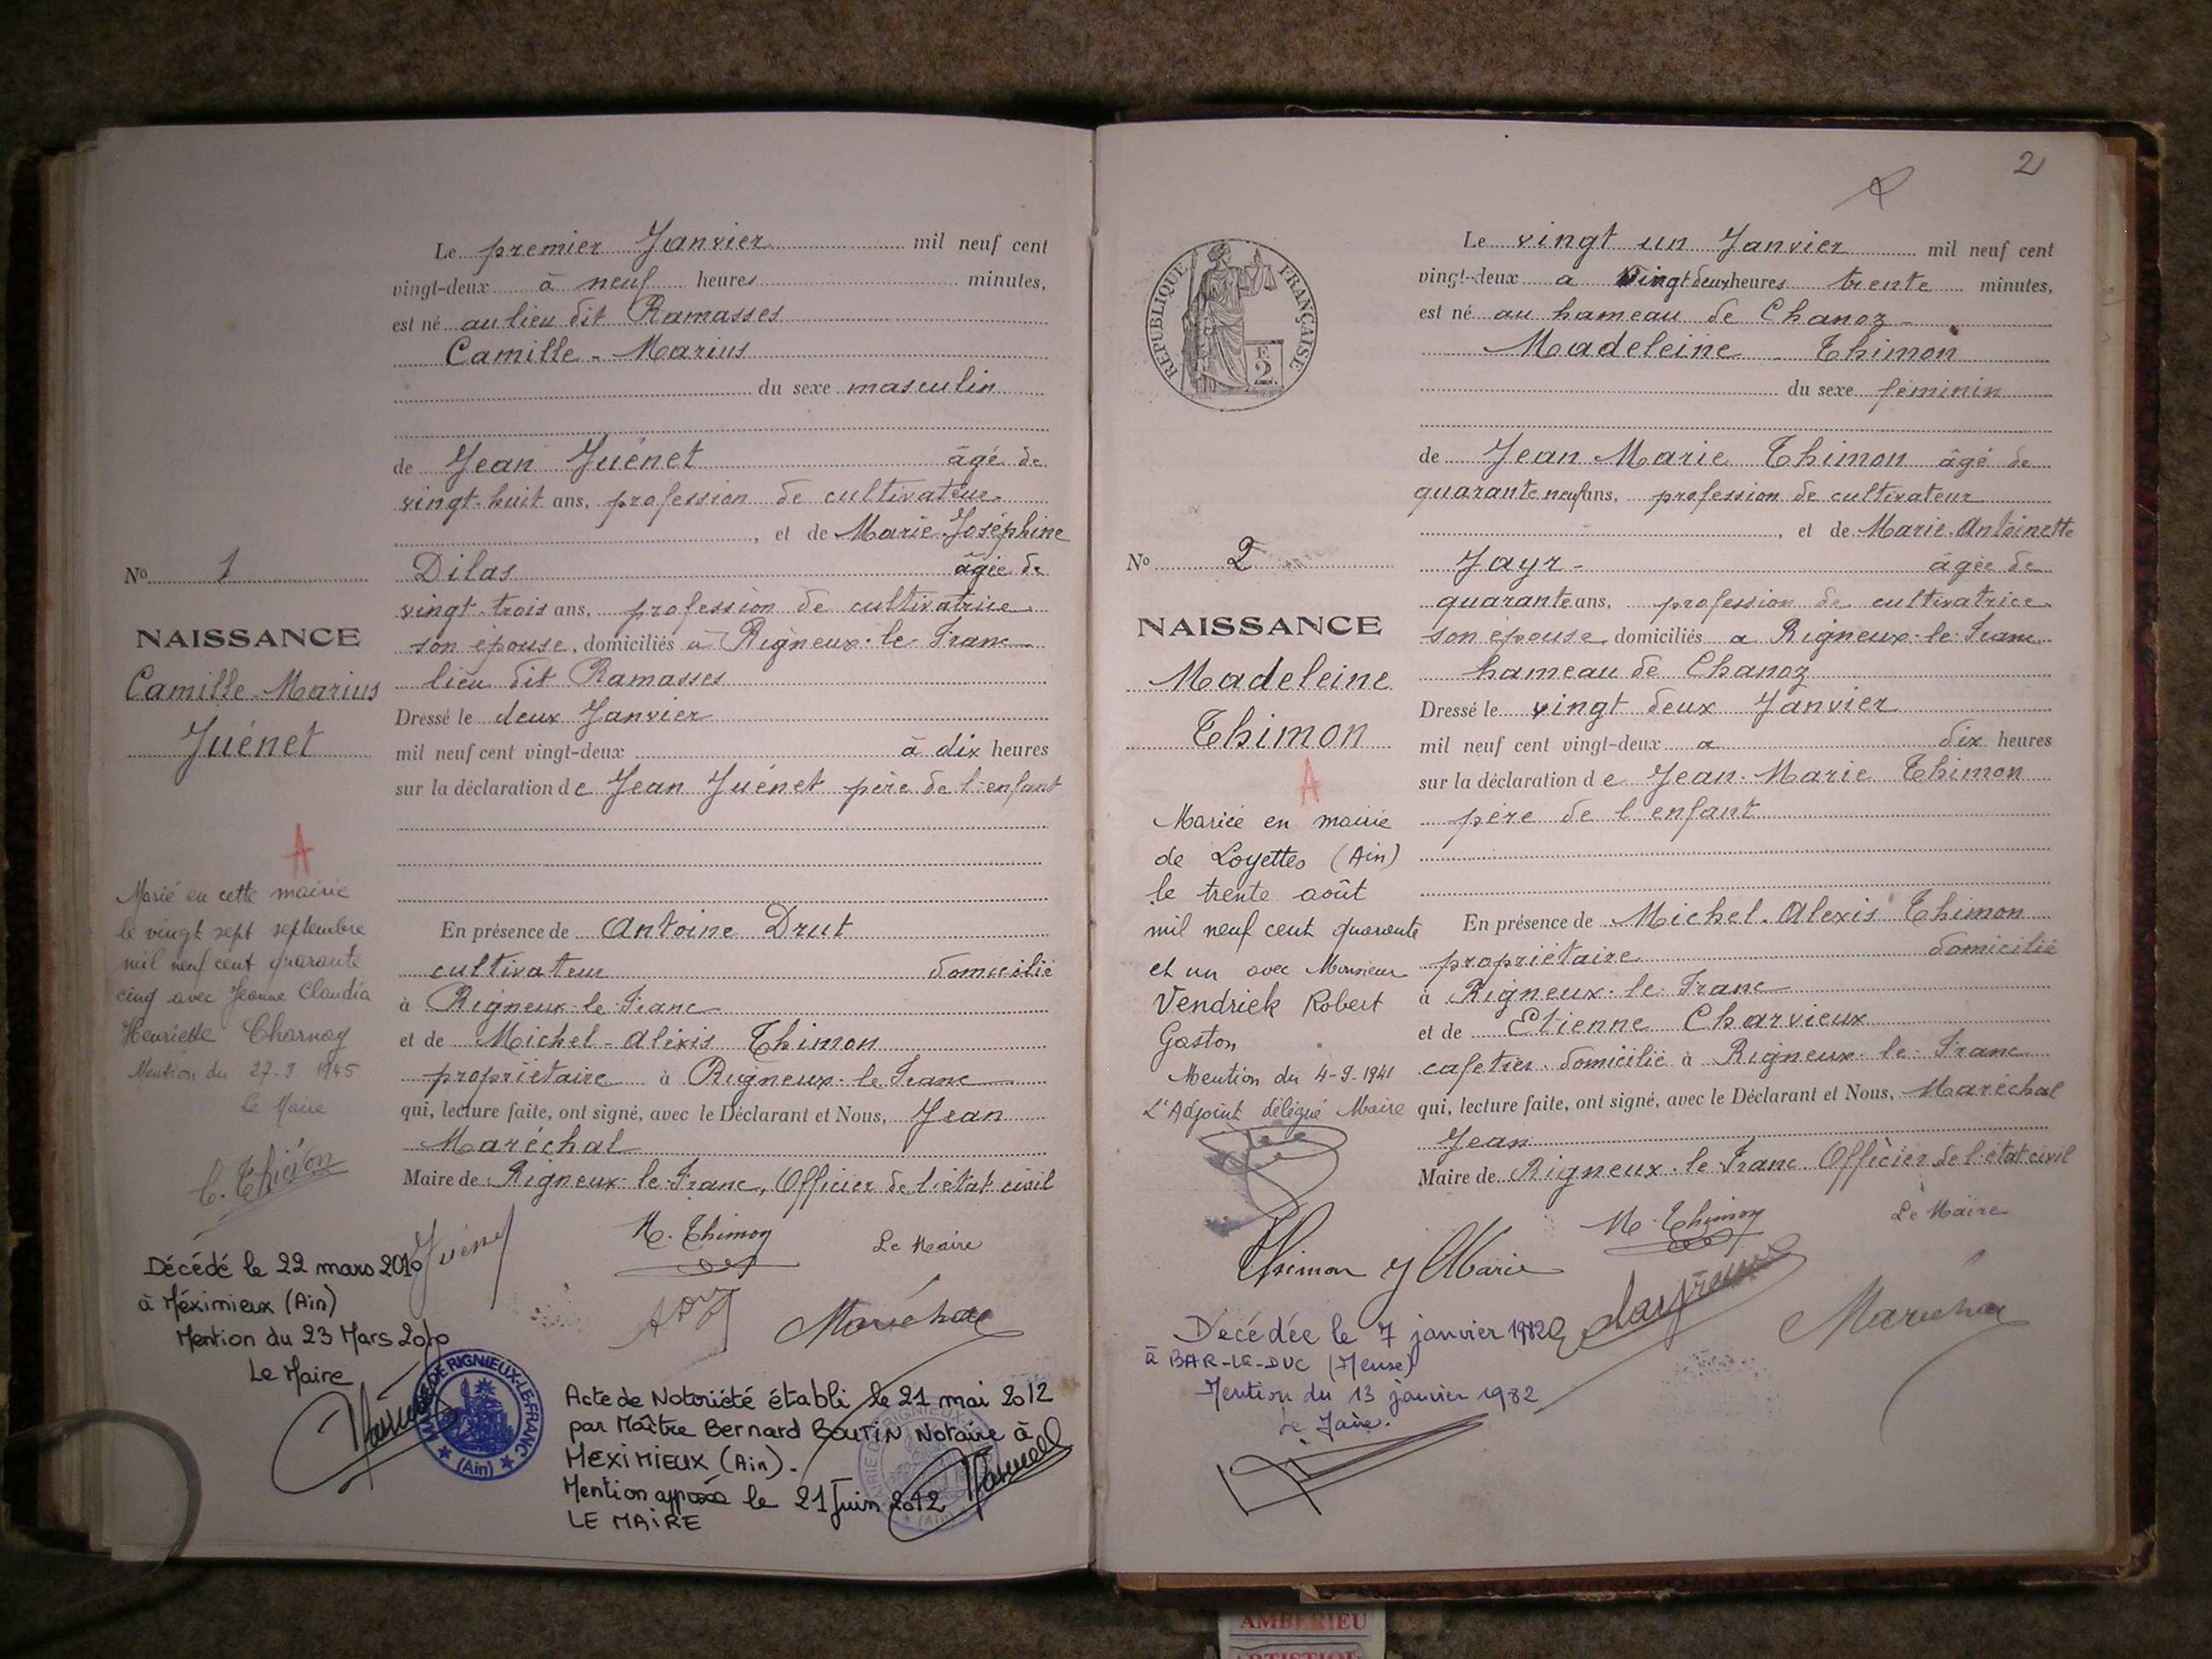 Le premier Janvier mil neuf cent
vingt-deux à neuf heures minutes,
est né au lieu dit Ramasses
Camille - Marius
du sexe masculin
de Jean Juénet âgé de
vingt-huit ans, profession de cultivateur
, et de Marie-Joséphine
Dilas âgée de
vingt-trois ans, profession de cultivatrice
son épouse, domiciliés à Rigneux-le-Franc
lieu dit Ramasses
Dressé le deux Janvier
mil neuf cent vingt-deux à dix heures
sur la déclaration de Jean Juénet père de l'enfant
En présence de Antoine Drut
cultivateur domicilié
à Rigneux-le-Franc
et de Michel-Alexis Thimon
propriétaire à Rigneux-le-Franc
qui, lecture faite, ont signé, avec le Déclarant et Nous, Jean
Maréchal
Maire de Rigneux-le-Franc, Officier de l'état civil
No 1
NAISSANCE
Camille-Marius
Juénet
A
Marié en cette mairie
le vingt sept septembre
mil neuf cent quarante
cinq avec Jeanne Claudia
Henriette Charnay
Mention du 27-9 1945
Le Maire
C. Thiévon
Juénet
M. Thimon
Le Maire
Drut
Maréchal
Décédé le 22 mars 2010
à Méximieux (Ain)
Mention du 23 Mars 2010
Le Maire
MAIRIE DE RIGNIEUX-LE-FRANC
(Ain)
Acte de Notoriété établi le 21 mai 2012
par Maître Bernard BOUTIN Notaire à
MEXIMIEUX (Ain).
Mention apposée le 21 Juin 2012
LE MAIRE
2
REPUBLIQUE FRANÇAISE
2
Le vingt un Janvier mil neuf cent
vingt-deux a Vingt deux heures trente minutes,
est né au hameau de Chanoz
Madeleine - Thimon
du sexe féminin
de Jean Marie Thimon âgé de
quarante neuf ans, profession de cultivateur
, et de Marie-Antoinette
Jayr - âgée de
quarante ans, profession de cultivatrice
son épouse domiciliés a Rigneux-le-Franc
hameau de Chanoz
Dressé le vingt deux Janvier
mil neuf cent vingt-deux a dix heures
sur la déclaration de Jean-Marie Thimon
père de l'enfant
En présence de Michel-Alexis Thimon
propriétaire domicilié
à Rigneux-le-Franc
et de Etienne Charvieux
cafetier domicilié à Rigneux-le-Franc
qui, lecture faite, ont signé, avec le Déclarant et Nous, Maréchal
Jean
Maire de Rigneux-le-Franc Officier de l'état civil
No 2
NAISSANCE
Madeleine
Thimon
A
Mariée en mairie
de Loyettes (Ain)
le trente août
mil neuf cent quarante
et un avec Monsieur
Vendrick Robert
Gaston
Mention du 4-9-1941
L'Adjoint délégué Maire
Thimon J Marie
M. Thimon
Le Maire
Charvieux
Maréchal
Décédée le 7 janvier 1982
à BAR-LE-DUC (Meuse)
Mention du 13 janvier 1982
Le Maire.
AMBERIEU